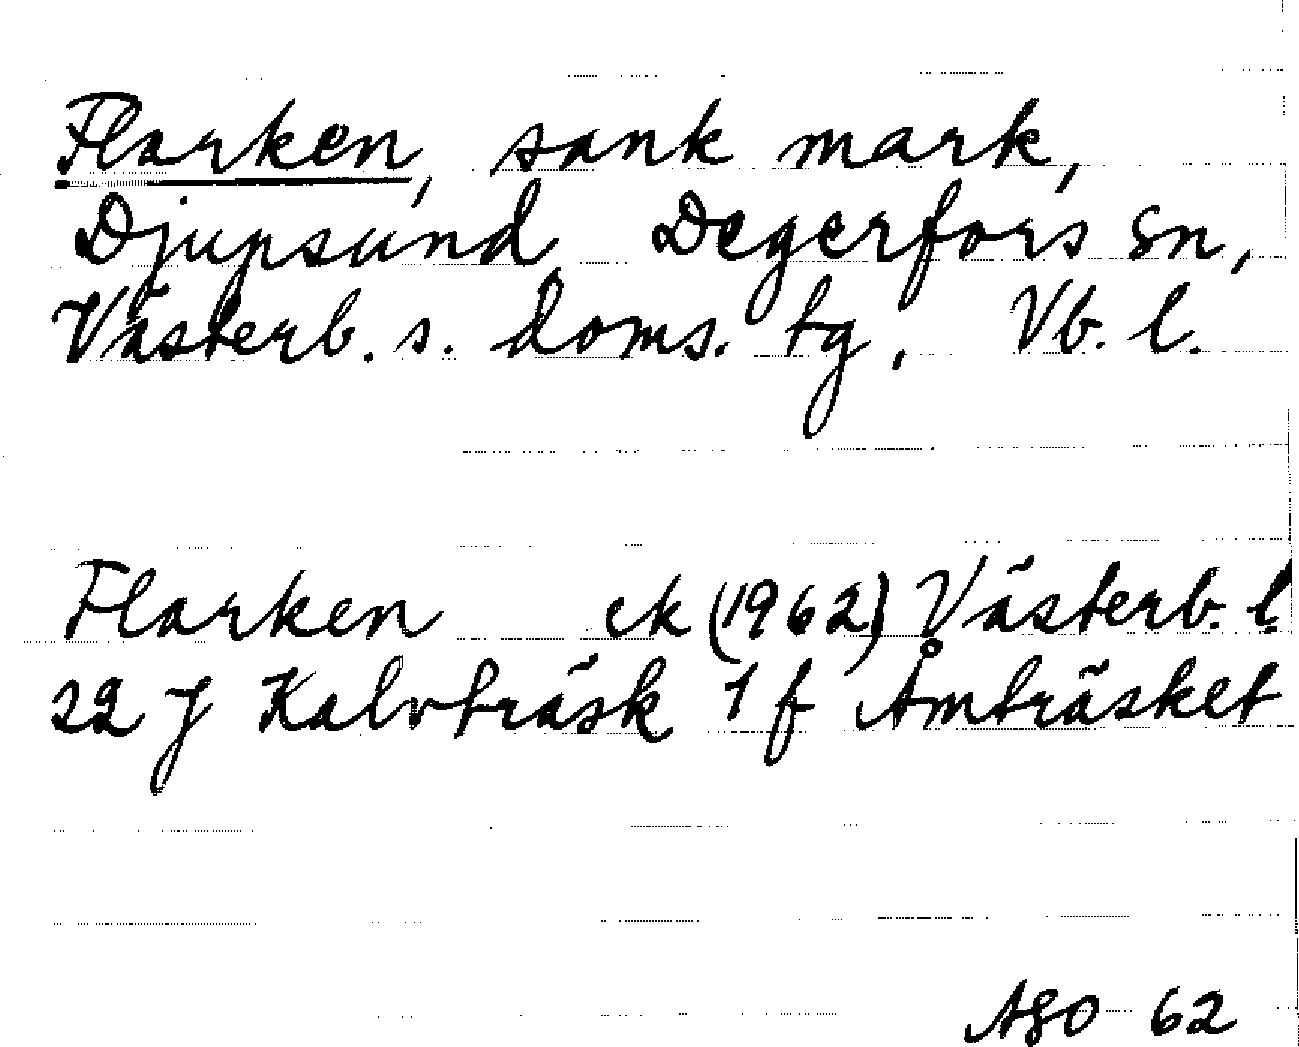 Flarken, sank mark,
Djupsund Degerfors sn,
Västerb. s. doms. tg, Vb. l.
Flarken ek (1962) Västerb. l.
22 J Kalvträsk 1 f Åmträsket
ASO 62